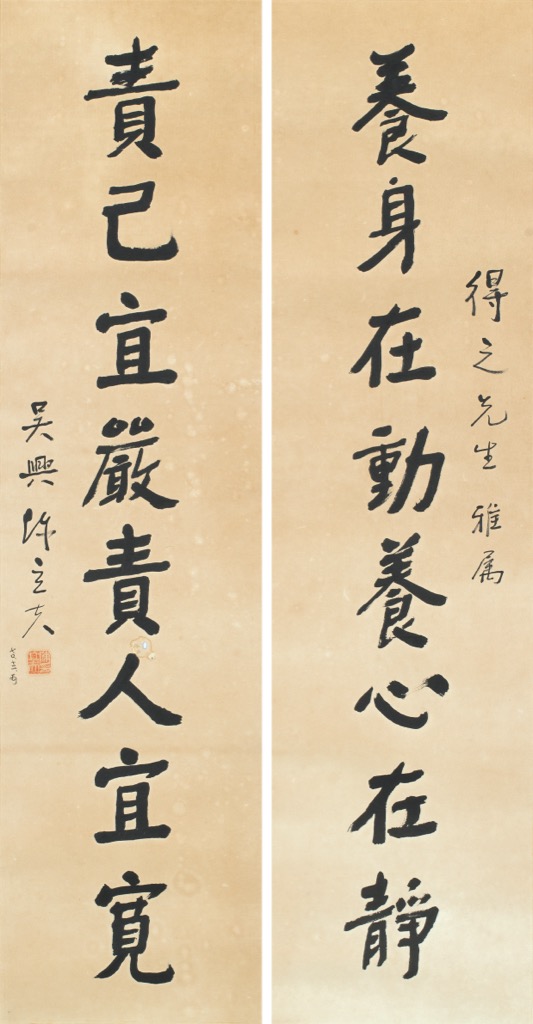 得之先生雅属
養身在動養心在靜
責己宜嚴責人宜寬
吳興陳立夫